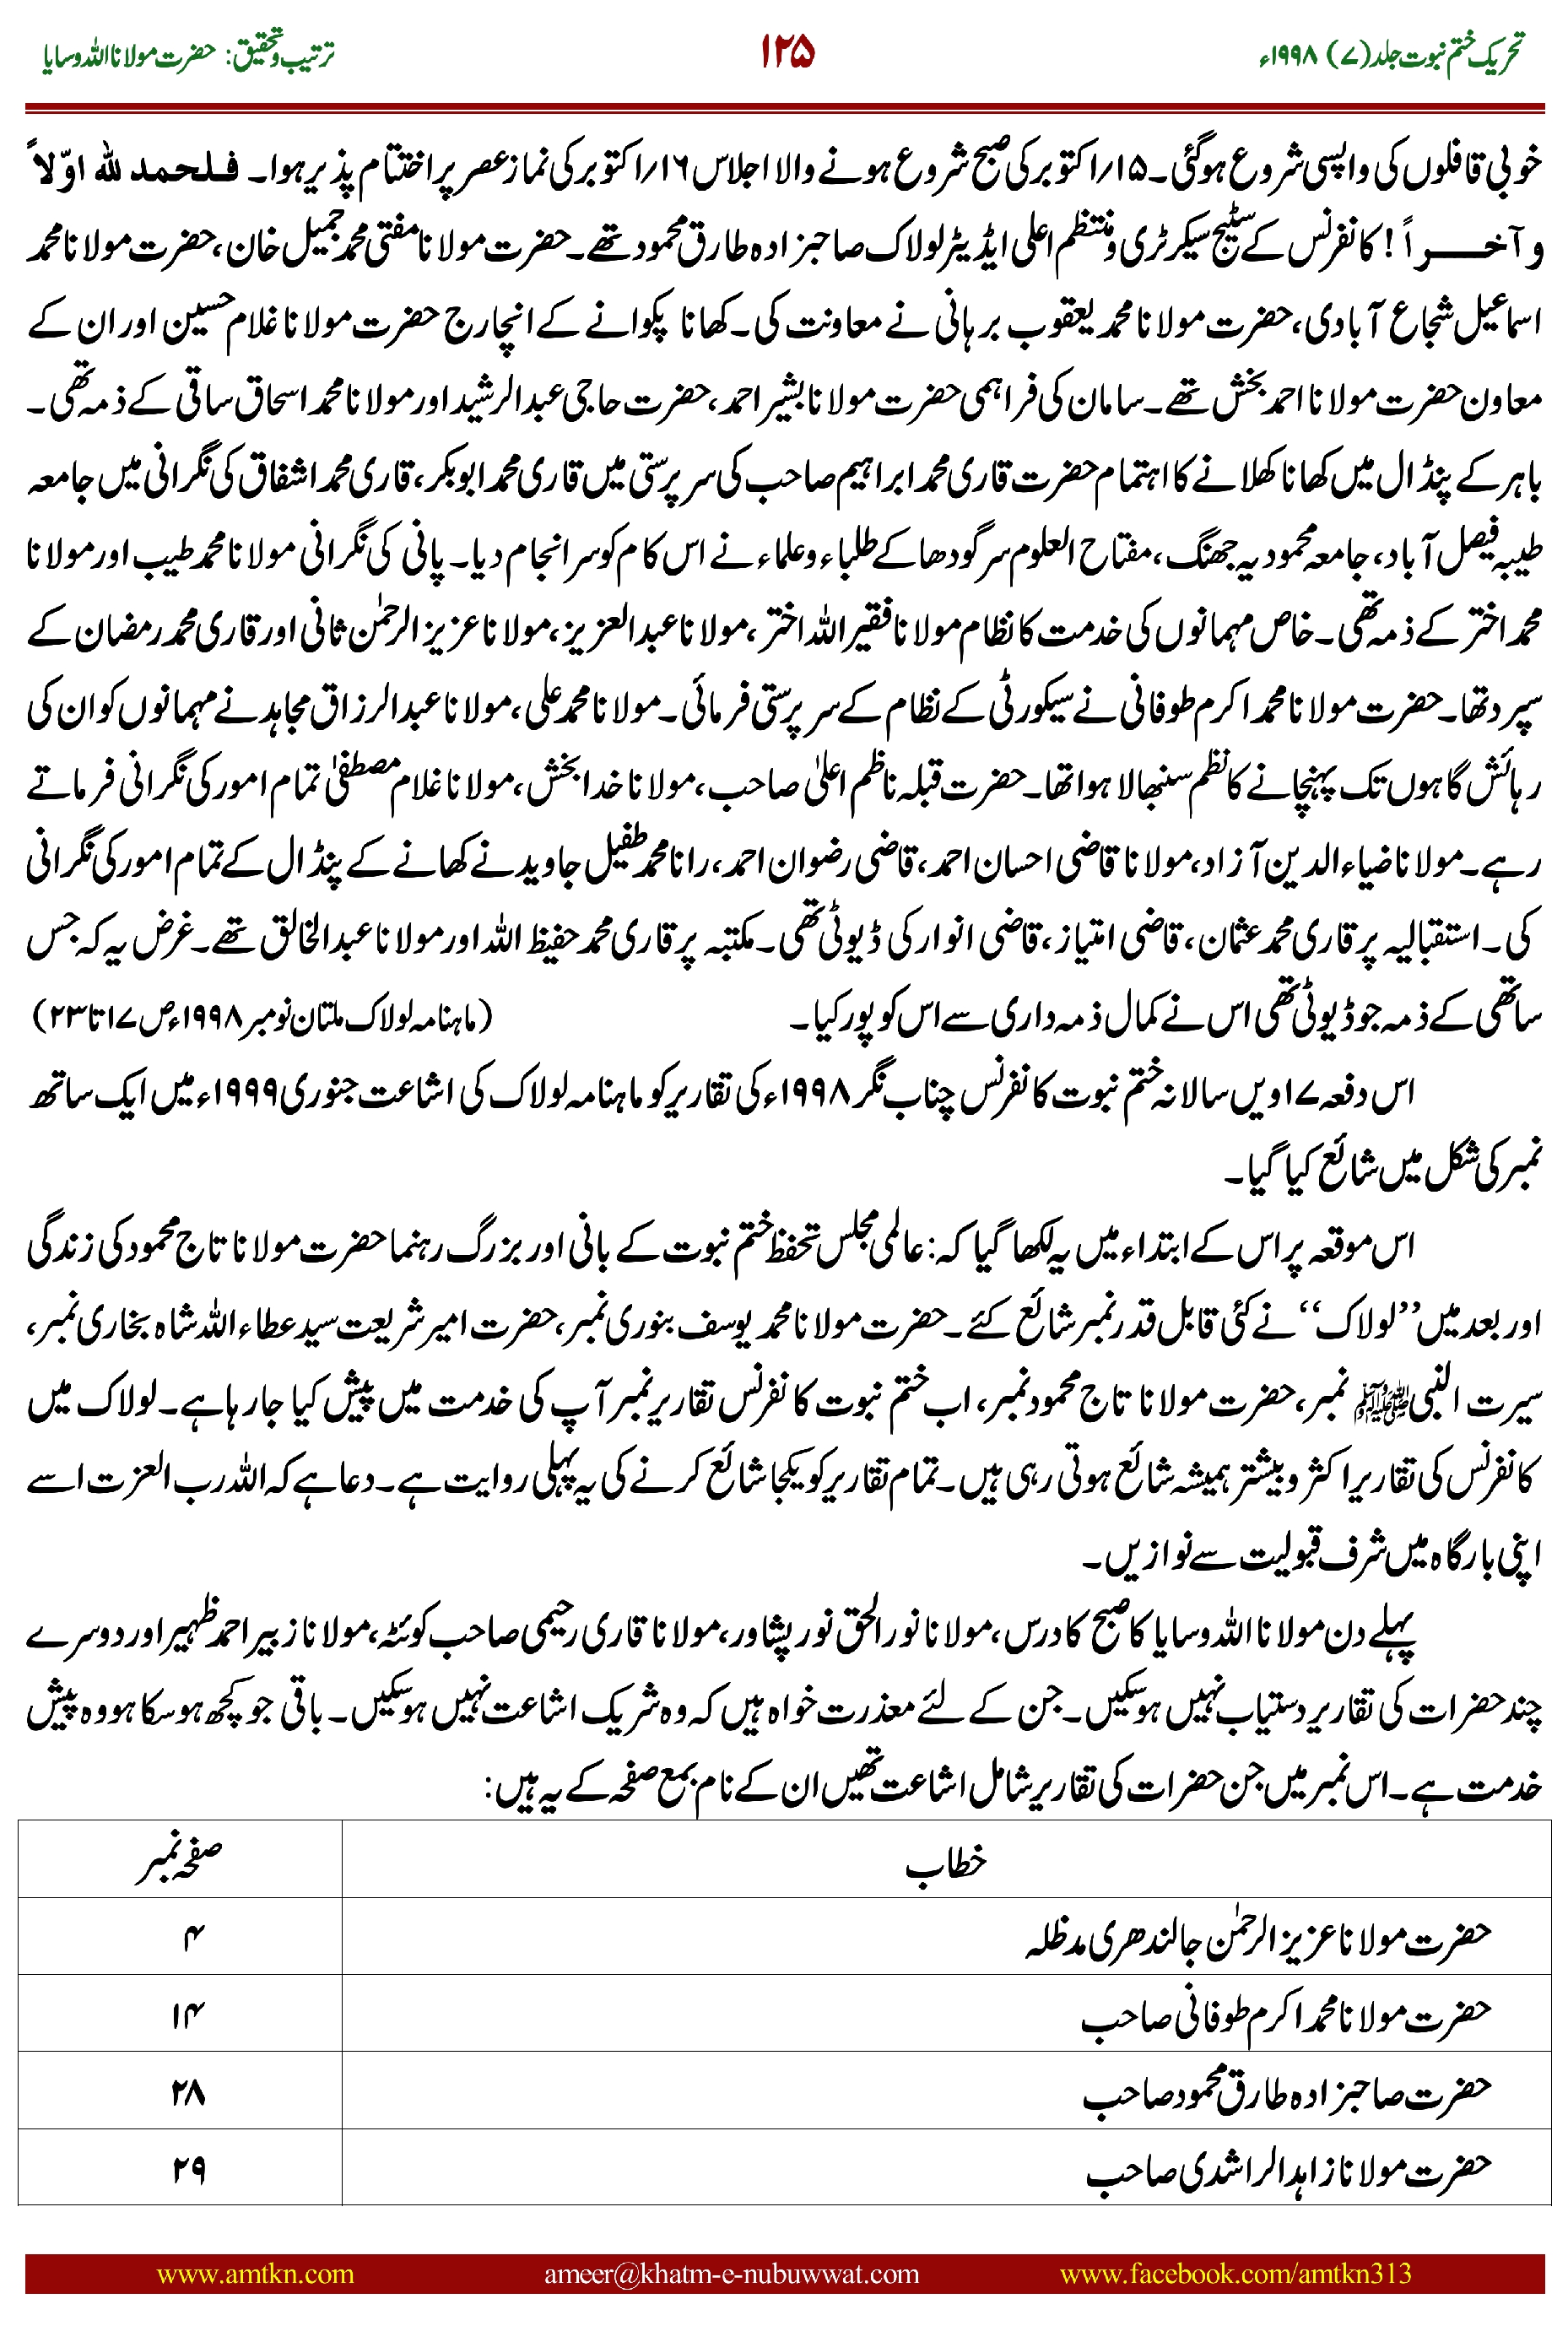 تحریک ختم نبوت جلد(۷) ۱۹۹۸ء
۱۲۵
ترتیب و تحقیق: حضرت مولانا اللہ وسایا
خوبی قافلوں کی واپسی شروع ہوگئی۔۱۵/اکتوبر کی صبح شروع ہونے والا اجلاس ۱۶/اکتوبر کی نماز عصر پر اختتام پذیر ہوا۔ فلحمد للہ اوّلاً
و آخراً! کانفرنس کے سٹیج سیکرٹری و منتظم اعلی ایڈیٹر لولاک صاحبزادہ طارق محمود تھے۔ حضرت مولانا مفتی محمد جمیل خان، حضرت مولانا محمد
اسماعیل شجاع آبادی، حضرت مولانا محمد یعقوب برہانی نے معاونت کی۔ کھانا پکوانے کے انچارج حضرت مولانا غلام حسین اور ان کے
معاون حضرت مولانا احمد بخش تھے۔ سامان کی فراہمی حضرت مولانا بشیر احمد، حضرت حاجی عبدالرشید اور مولانا محمد اسحاق ساقی کے ذمہ تھی۔
باہر کے پنڈال میں کھانا کھلانے کا اہتمام حضرت قاری محمد ابراہیم صاحب کی سرپرستی میں قاری محمد ابوبکر، قاری محمد اشفاق کی نگرانی میں جامعہ
طیبہ فیصل آباد، جامعہ محمودیہ جھنگ، مفتاح العلوم سرگودھا کے طلباء و علماء نے اس کام کو سرانجام دیا۔ پانی کی نگرانی مولانا محمد طیب اور مولانا
محمد اختر کے ذمہ تھی۔ خاص مہمانوں کی خدمت کا نظام مولانا فقیر اللہ اختر، مولانا عبدالعزیز، مولانا عزیز الرحمٰن ثانی اور قاری محمد رمضان کے
سپرد تھا۔ حضرت مولانا محمد اکرم طوفانی نے سیکورٹی کے نظام کے سرپرستی فرمائی۔ مولانا محمد علی، مولانا عبدالرزاق مجاہد نے مہمانوں کو ان کی
رہائش گاہوں تک پہنچانے کا نظم سنبھالا ہوا تھا۔ حضرت قبلہ ناظم اعلیٰ صاحب، مولانا خدا بخش، مولانا غلام مصطفیٰ تمام امور کی نگرانی فرماتے
رہے۔ مولانا ضیاء الدین آزاد، مولانا قاضی احسان احمد، قاضی رضوان احمد، رانا محمد طفیل جاوید نے کھانے کے پنڈال کے تمام امور کی نگرانی
کی۔ استقبالیہ پر قاری محمد عثمان، قاضی امتیاز، قاضی انوار کی ڈیوٹی تھی۔ مکتبہ پر قاری محمد حفیظ اللہ اور مولانا عبدالخالق تھے۔ غرض یہ کہ جس
ساتھی کے ذمہ جو ڈیوٹی تھی اس نے کمال ذمہ داری سے اس کو پور کیا۔ (ماہنامہ لولاک ملتان نومبر ۱۹۹۸ء ص ۱۷ تا ۲۳)
اس دفعہ ۱۷ویں سالانہ ختم نبوت کانفرنس چناب نگر ۱۹۹۸ء کی تقاریر کو ماہنامہ لولاک کی اشاعت جنوری ۱۹۹۹ء میں ایک ساتھ
نمبر کی شکل میں شائع کیا گیا۔
اس موقعہ پر اس کے ابتداء میں یہ لکھا گیا کہ: عالمی مجلس تحفظ ختم نبوت کے بانی اور بزرگ رہنما حضرت مولانا تاج محمود کی زندگی
اور بعد میں ’’لولاک‘‘ نے کئی قابل قدر نمبر شائع کئے۔ حضرت مولانا محمد یوسف بنوری نمبر، حضرت امیر شریعت سید عطاء اللہ شاہ بخاری نمبر،
سیرت النبی ﷺ نمبر، حضرت مولانا تاج محمود نمبر، اب ختم نبوت کانفرنس تقاریر نمبر آپ کی خدمت میں پیش کیا جا رہا ہے۔ لولاک میں
کانفرنس کی تقاریر اکثر و بیشتر ہمیشہ شائع ہوتی رہی ہیں۔ تمام تقاریر کو یکجا شائع کرنے کی یہ پہلی روایت ہے۔ دعا ہے کہ اللہ رب العزت اسے
اپنی بارگاہ میں شرف قبولیت سے نوازیں۔
پہلے دن مولانا اللہ وسایا کا صبح کا درس، مولانا نور الحق نور پشاور، مولانا قاری رحیمی صاحب کوئٹہ، مولانا زبیر احمد ظہیر اور دوسرے
چند حضرات کی تقاریر دستیاب نہیں ہوسکیں۔ جن کے لئے معذرت خواہ ہیں کہ وہ شریک اشاعت نہیں ہوسکیں۔ باقی جو کچھ ہوسکا ہو وہ پیش
خدمت ہے۔ اس نمبر میں جن حضرات کی تقاریر شامل اشاعت تھیں ان کے نام بمع صفحہ کے یہ ہیں:
خطاب صفحہ نمبر
حضرت مولانا عزیز الرحمٰن جالندھری مدظلہ ۴
حضرت مولانا محمد اکرم طوفانی صاحب ۱۴
حضرت صاحبزادہ طارق محمود صاحب ۲۸
حضرت مولانا زاہد الراشدی صاحب ۲۹
www.amtkn.com ameer@khatm-e-nubuwwat.com www.facebook.com/amtkn313